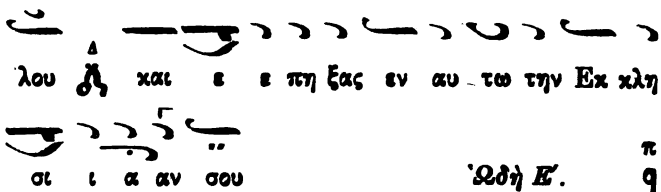 λου και ε ε πη ξας εν αυ τω την Εκ κλη
σι ι α αν σου Ὠδὴ Ε΄. π
q